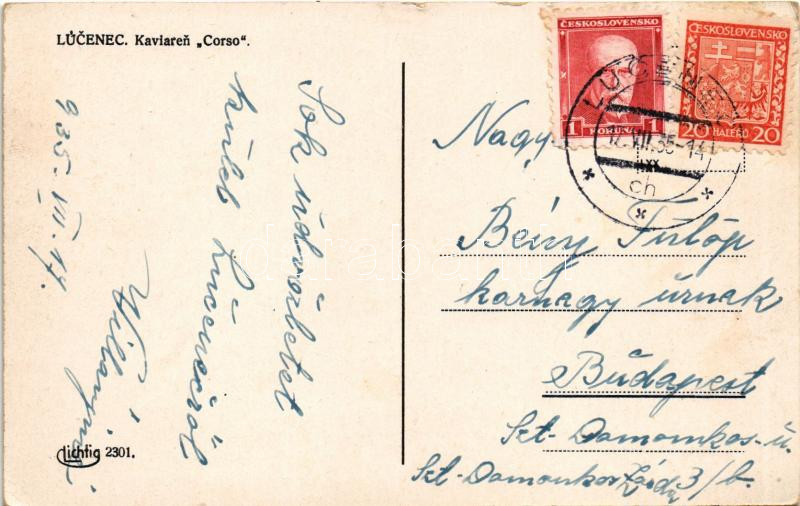 LÚČENEC. Kaviareň „Corso".
935. VII. 17.
Sok üdvözletet
küld Lučenecről
lichtig 2301.
ČESKOSLOVENSKO
1 KORUNA 1
ČESKOSLOVENSKO
20 HALÉŘŮ 20
LUČENEC
17.VII.35-14
ch
Nagys
Beiny Fülöp
karnagy úrnak
Budapest
Szt-Damonkos-u.
Szt-Damonkos 3/b.